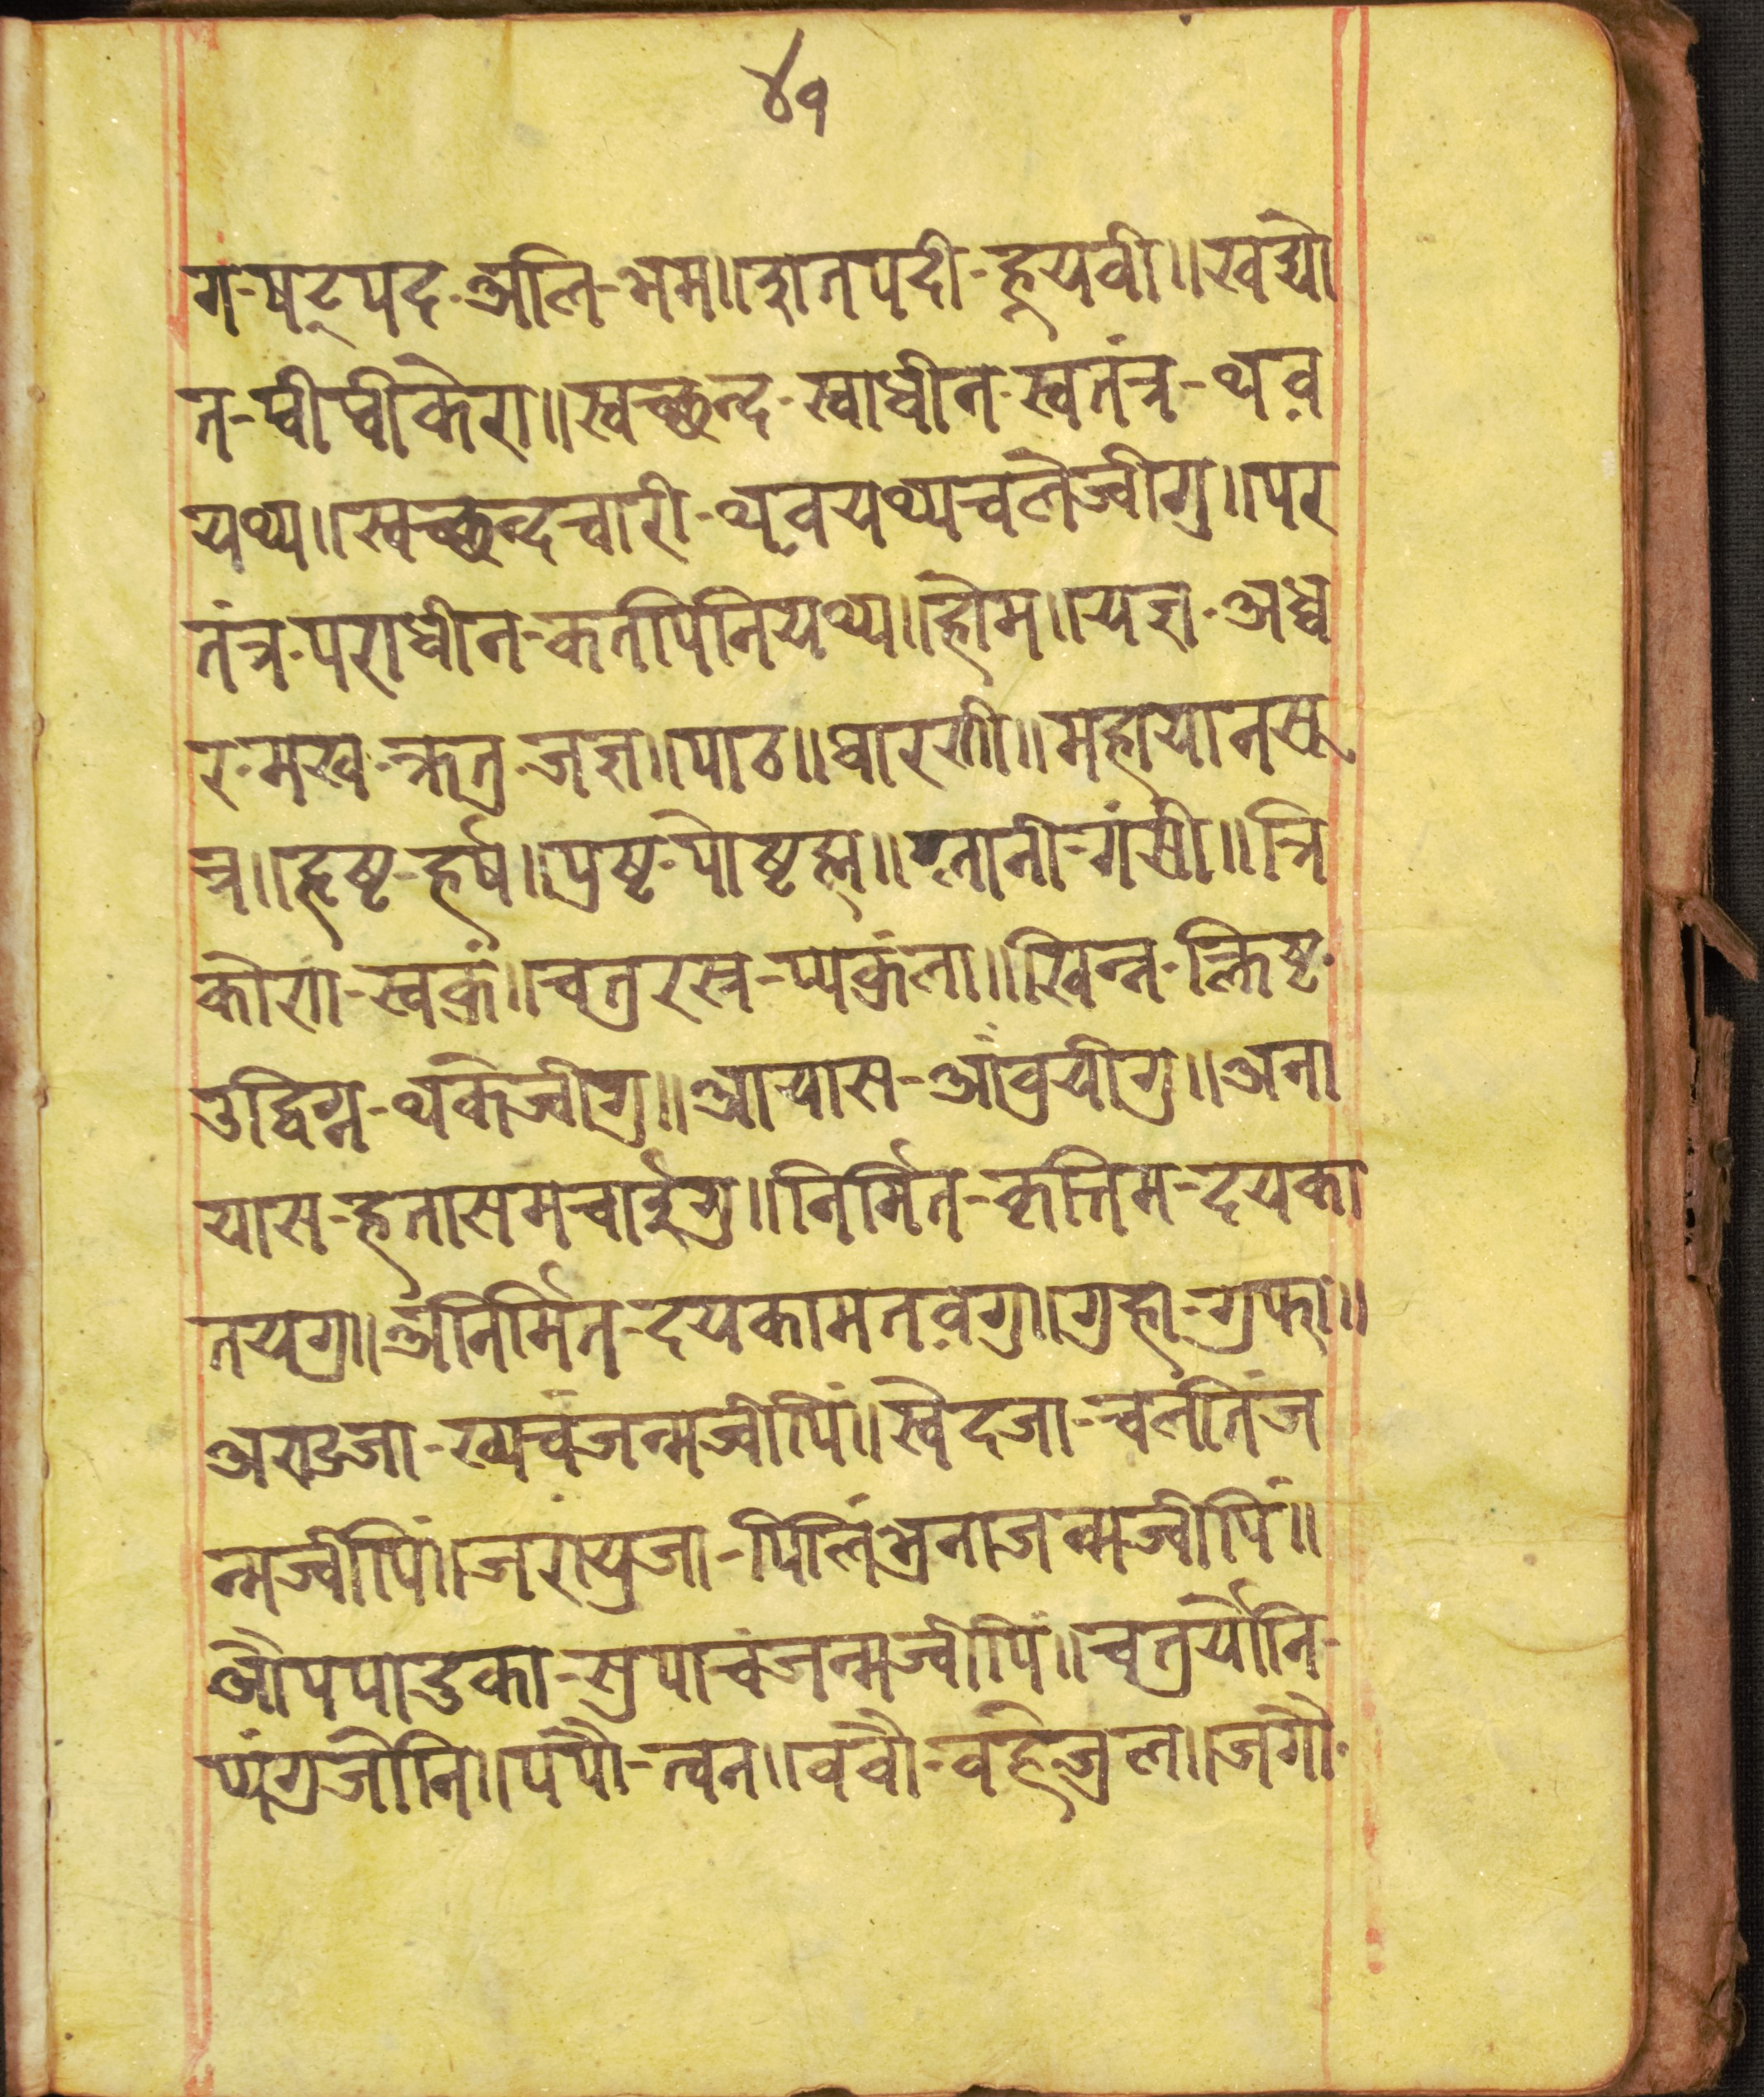 ४१
ग-षट्पद-अलि-भम॥शतपदी-हूयवी॥खद्यो
त-प्वीप्वीकेरा॥स्वच्छन्द-स्वाधीन-स्वतंत्र-थव़
यथ्य॥स्वच्छन्दचारी-थव़यथ्यचलेज्वीगु॥पर
तंत्र-पराधीन-कतपिनियथ्य॥होम॥यज्ञ-अध्व
र-मख-क्रतु-जज्ञ॥पाठ॥धारणी॥महायानसू
त्र॥हृष्ट-हर्ष॥पुष्ट-पोष्टह्म॥ग्लानी-गंसी॥त्रि
कोण-स्वकुं॥चतुरस्र-प्यकुंला॥खिन्न-क्लिष्ट-
उद्विग्न-थकेज्वीगु॥आयास-आंवुयीगु॥अना
यास-हतासमचाईगु॥निर्मित-कृत्तिम-दयका
तयगु॥अनिर्मित-दयकामतव़गु॥गुहा-गुफा॥
अण्डजा-ख्यचंजन्मज्वीपिं॥स्वेदजा-चलतिंज
न्मज्वीपिं॥जरायुजा-पिलिंभुनाजन्मज्वीपिं॥
औपपादुका-सुपाचंजन्मज्वीपिं॥चतुर्योनि-
प्यंगुजोनि॥पपौ-त्वन॥ववौ-वहेजुल॥जगौ-